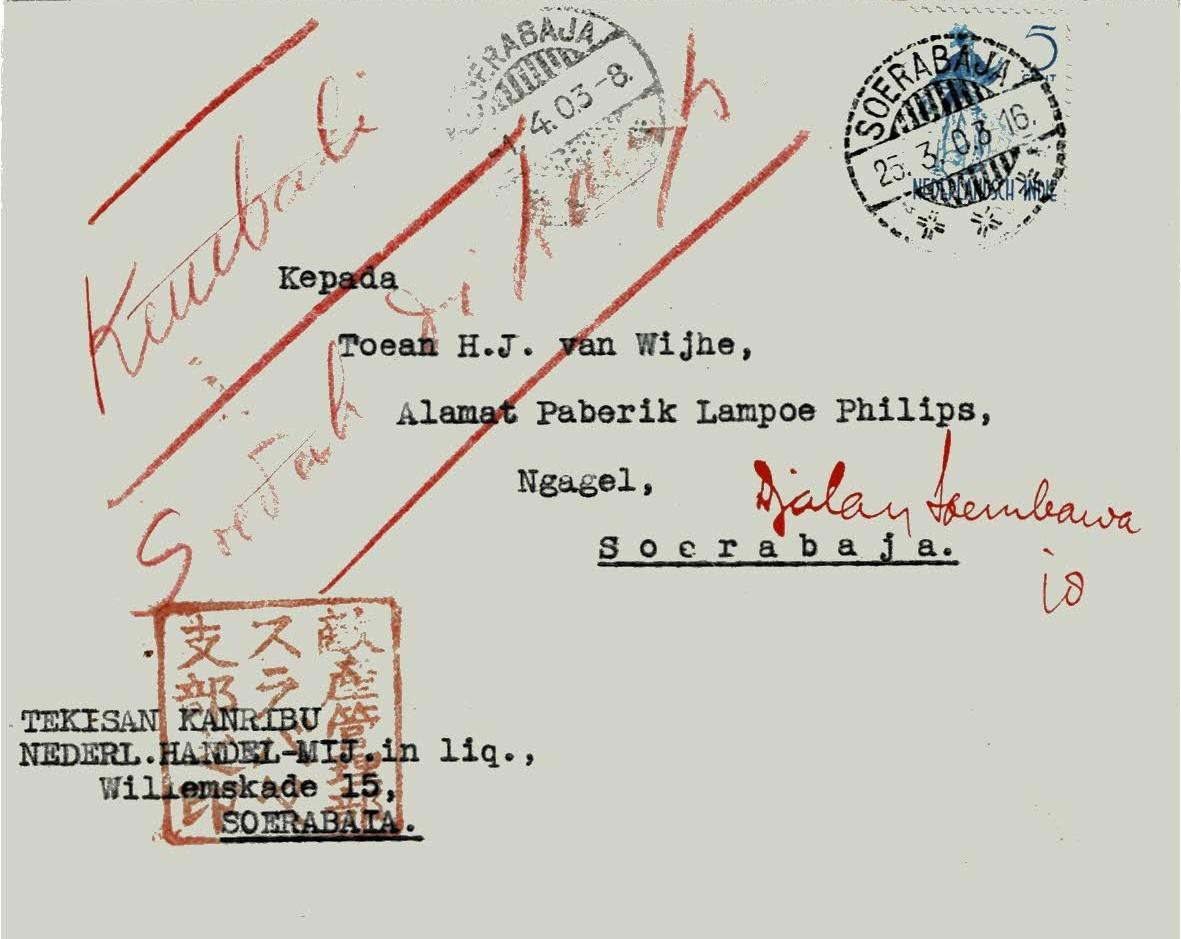 SOERABAJA
4.03-8.
5
CENT
SOERABAJA
25.3.03 16.
NEDERLANDSCH INDIE
Kembali
Soedah pikah
Kepada
Toean H.J. van Wijhe,
Alamat Paberik Lampoe Philips,
Ngagel,
Djalan Soembawa
Soerabaja.
10
敵産管理部
スラバヤ
支部之印
TEKISAN KANRIBU
NEDERL.HANDEL-MIJ.in liq.,
Willemskade 15,
SOERABAIA.